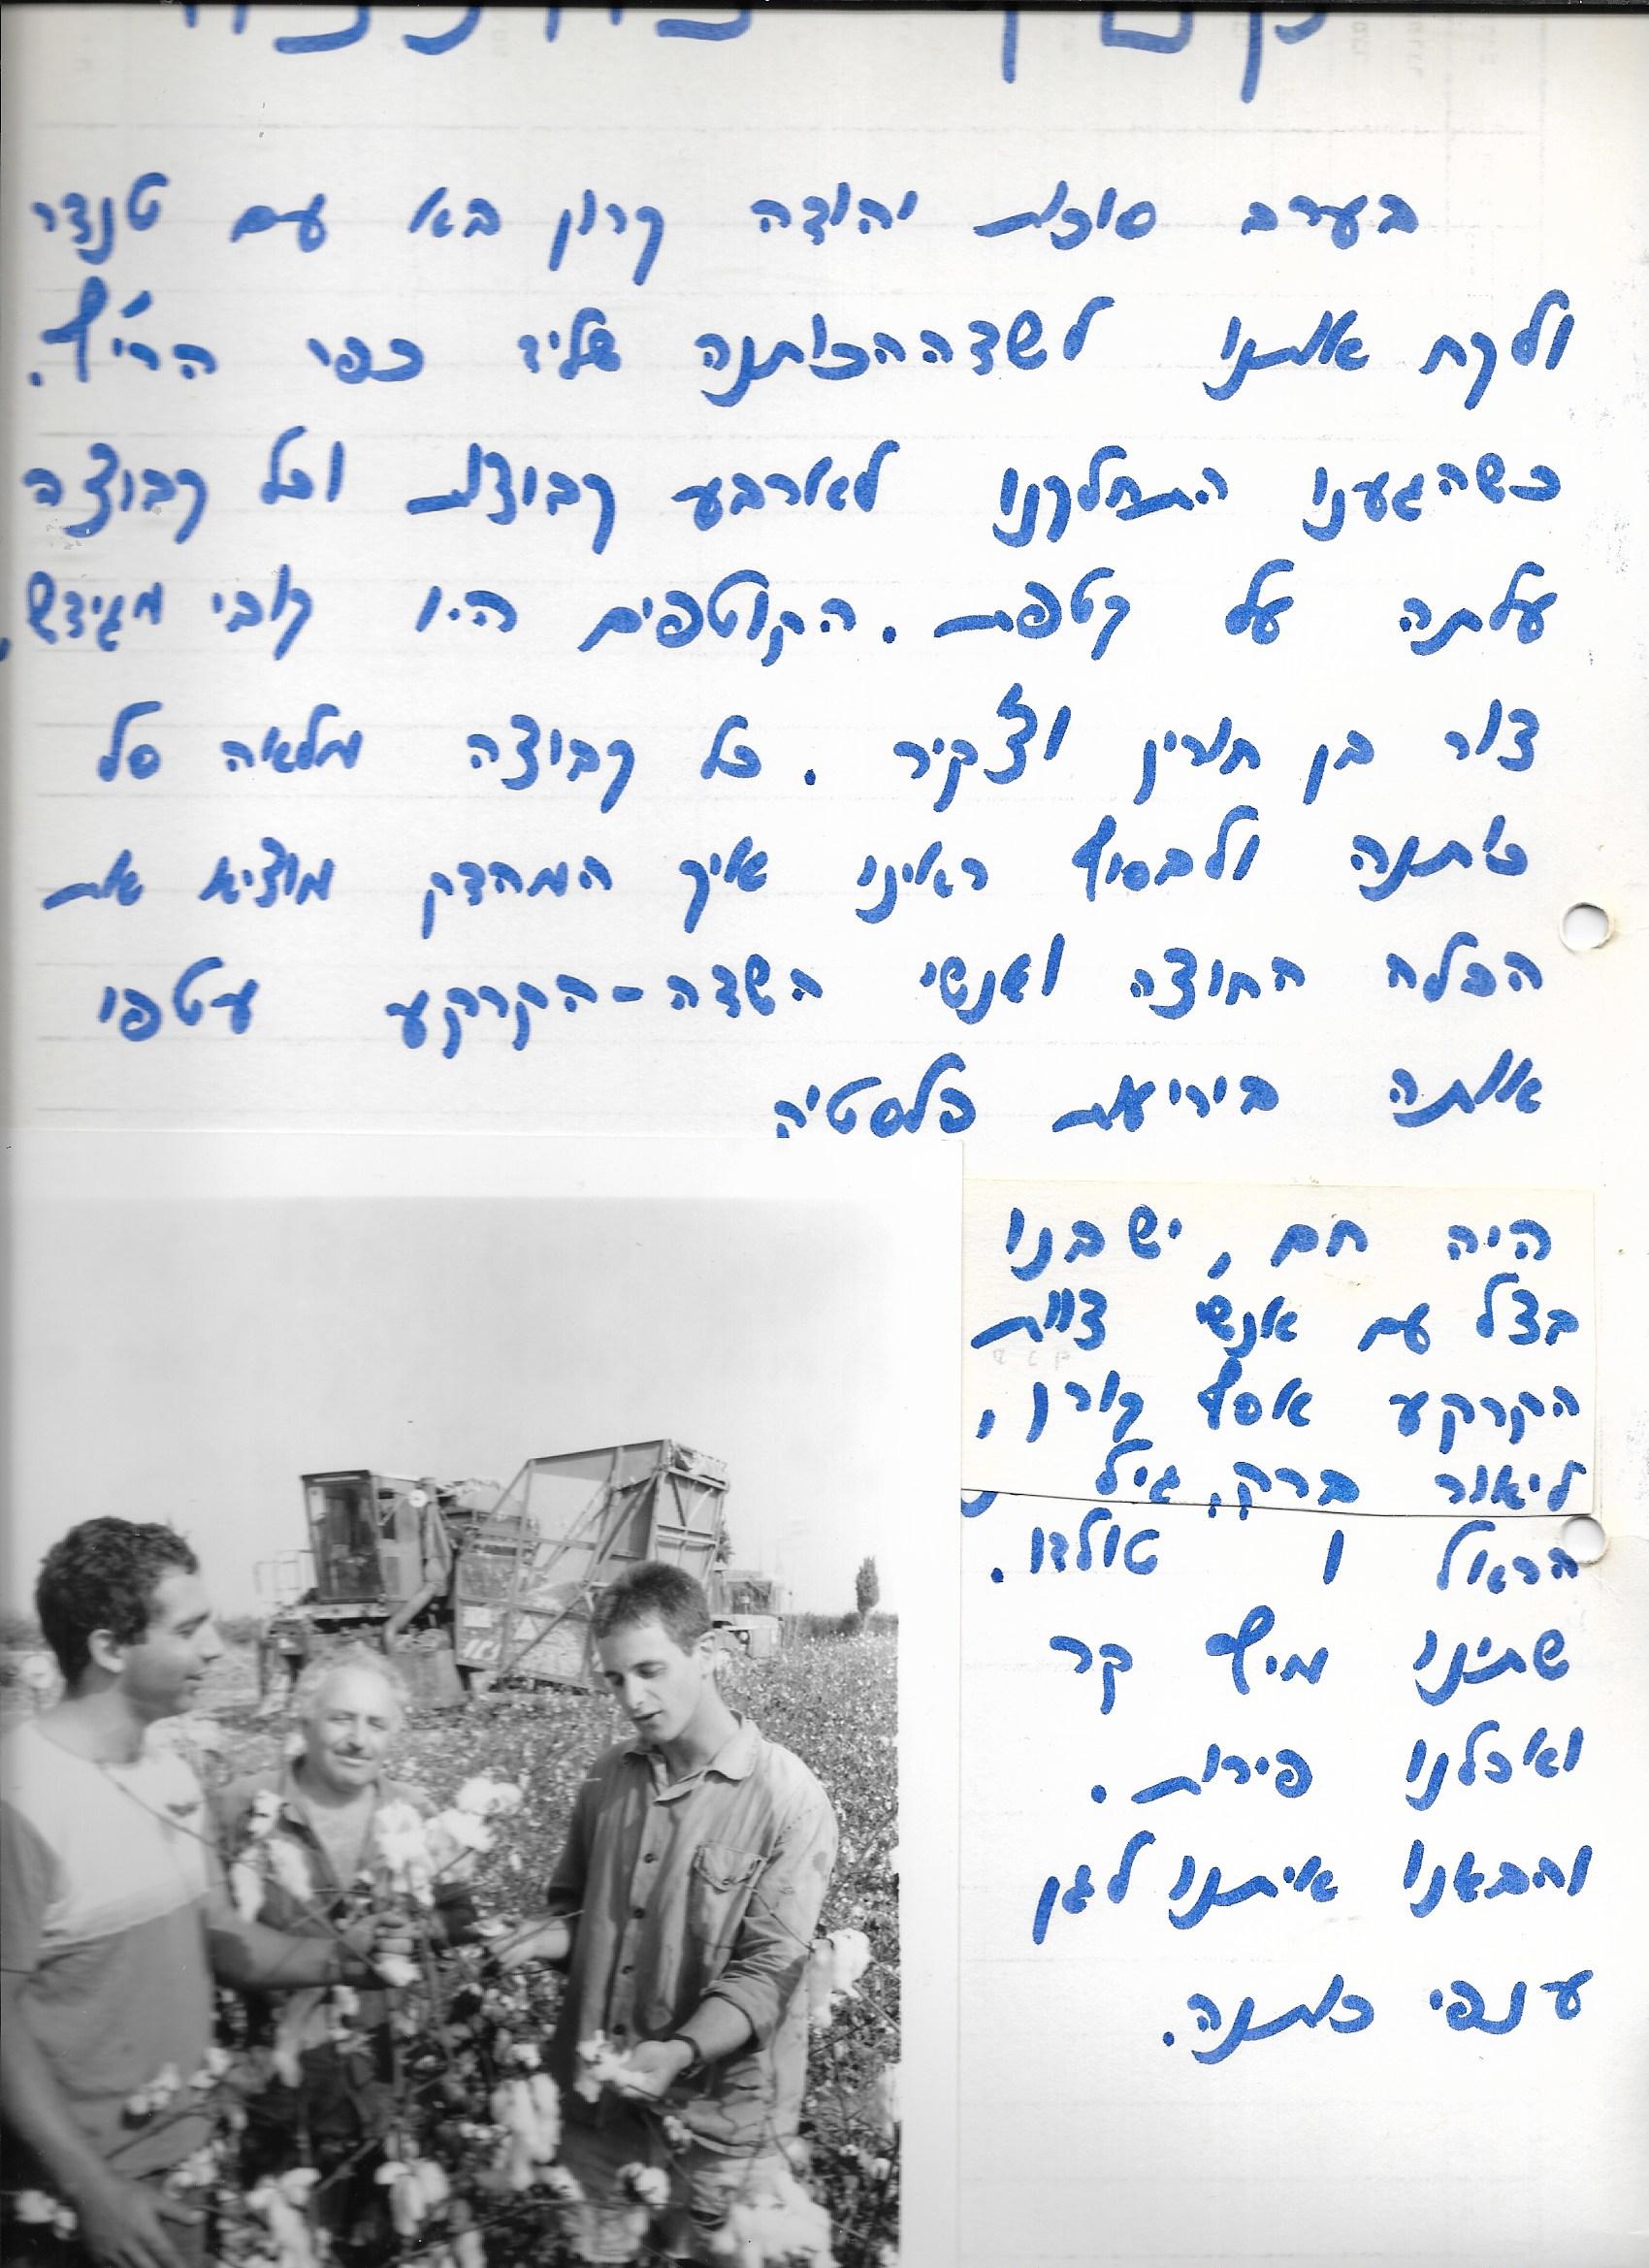 בערב סוכות יהודה קרון בא עם טנדר
ולקח אותנו לשדההכותנה שליד כפר הרי"ף.
כשהגענו התחלקנו לארבע קבוצות וכל קבוצה
עלתה על קטפת. הקוטפים היו קובי מגידש,
צור בן חורין וצ'קיר. כל קבוצה מלאה סל
כותנה ולבסוף ראינו איך המהדק מוציא את
הכלח החוצה ואנשי השדה-הקרקע עטפו
אותה ביריעת פלסטיה
היה חם, ישבנו
בצל עם אנשי צוות
הקרקע אסף קורן,
ליאור ברק, גיל
הראל ו טולדו.
שתינו מיץ קר
ואכלנו פירות.
והבאנו איתנו לגן
ענפי כותנה.